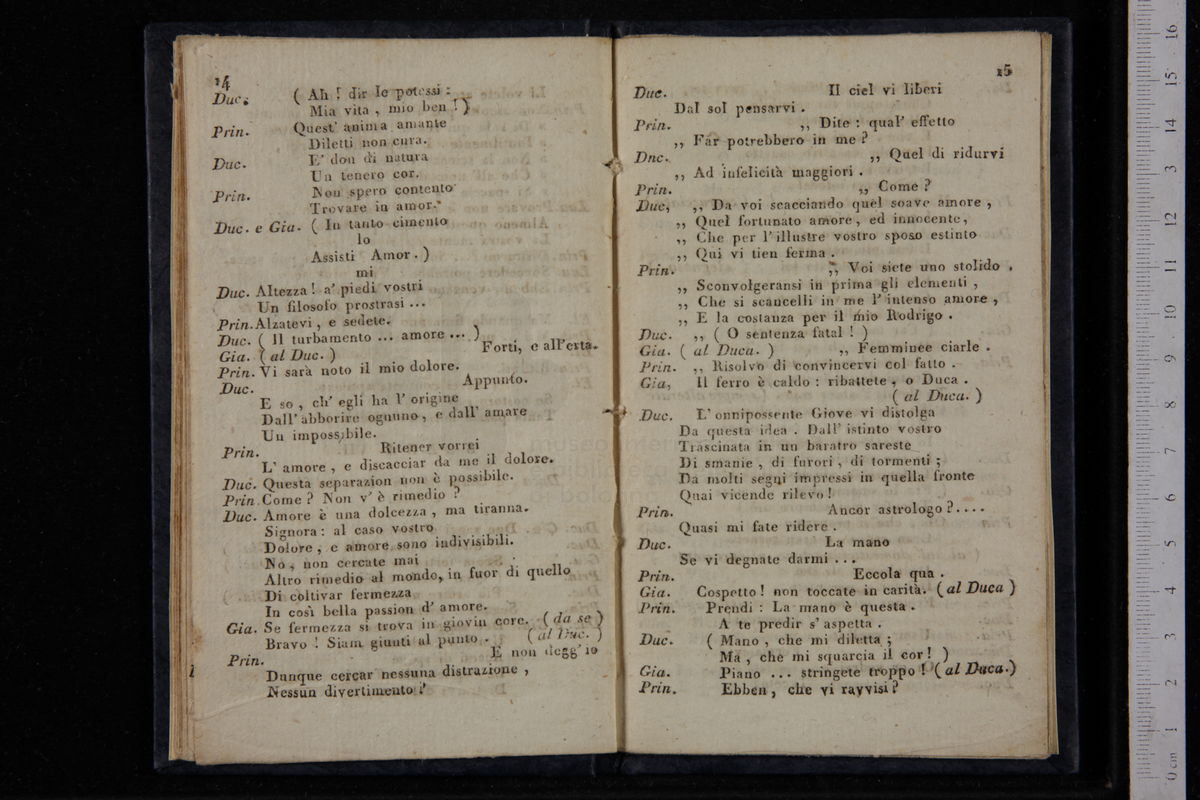 14
Duc. ( Ah ! dir le potessi :
Mia vita , mio ben ! )
Prin. Quest' anima amante
Diletti non cura.
Duc. E' don di natura
Un tenero cor.
Prin. Non spero contento
Trovare in amor.
Duc. e Gia. ( In tanto cimento
lo
Assisti Amor . )
mi
Duc. Altezza ! a' piedi vostri
Un filosofo prostrasi ...
Prin. Alzatevi , e sedete.
Duc. ( Il turbamento ... amore ... )
Gia. ( al Duc. ) Forti, e all'erta.
Prin. Vi sarà noto il mio dolore.
Duc. Appunto.
E so , ch' egli ha l' origine
Dall' abborire ognuno , e dall' amare
Un impossibile.
Prin. Ritener vorrei
L' amore , e discacciar da me il dolore.
Duc. Questa separazion non è possibile.
Prin. Come ? Non v' è rimedio ?
Duc. Amore è una dolcezza , ma tiranna.
Signora : al caso vostro
Dolore , e amore sono indivisibili.
No , non cercate mai
Altro rimedio al mondo, in fuor di quello
Di coltivar fermezza
In così bella passion d' amore.
Gia. Se fermezza si trova in giovin core. ( da se )
Bravo ! Siam giunti al punto . ( al Duc. )
Prin. E non degg' io
Dunque cercar nessuna distrazione ,
Nessun divertimento ?
15
Duc. Il ciel vi liberi
Dal sol pensarvi .
Prin. ,, Dite : qual' effetto
,, Far potrebbero in me ?
Dnc. ,, Quel di ridurvi
,, Ad infelicità maggiori .
Prin. ,, Come ?
Duc, ,, Da voi scacciando quel soave amore ,
,, Quel fortunato amore , ed innocente,
,, Che per l' illustre vostro sposo estinto
,, Qui vi tien ferma .
Prin. ,, Voi siete uno stolido .
,, Sconvolgeransi in prima gli elementi ,
,, Che si scancelli in me l' intenso amore ,
,, E la costanza per il mio Rodrigo .
Duc. ,, ( O sentenza fatal ! )
Gia. ( al Duca. ) ,, Femminee ciarle .
Prin. ,, Risolvo di convincervi col fatto .
Gia, Il ferro è caldo : ribattete , o Duca .
( al Duca. )
Duc. L' onnipossente Giove vi distolga
Da questa idea . Dall' istinto vostro
Trascinata in un baratro sareste
Di smanie , di furori , di tormenti ;
Da molti segni impressi in quella fronte
Quai vicende rilevo !
Prin. Ancor astrologo ? . . . .
Quasi mi fate ridere .
Duc. La mano
Se vi degnate darmi . . .
Prin. Eccola qua .
Gia. Cospetto ! non toccate in carità. ( al Duca )
Prin. Prendi : La mano è questa .
A te predir s' aspetta .
Duc. ( Mano , che mi diletta ;
Ma , che mi squarcia il cor ! )
Gia. Piano ... stringete troppo ! ( al Duca.)
Prin. Ebben , che vi ravvisi ?